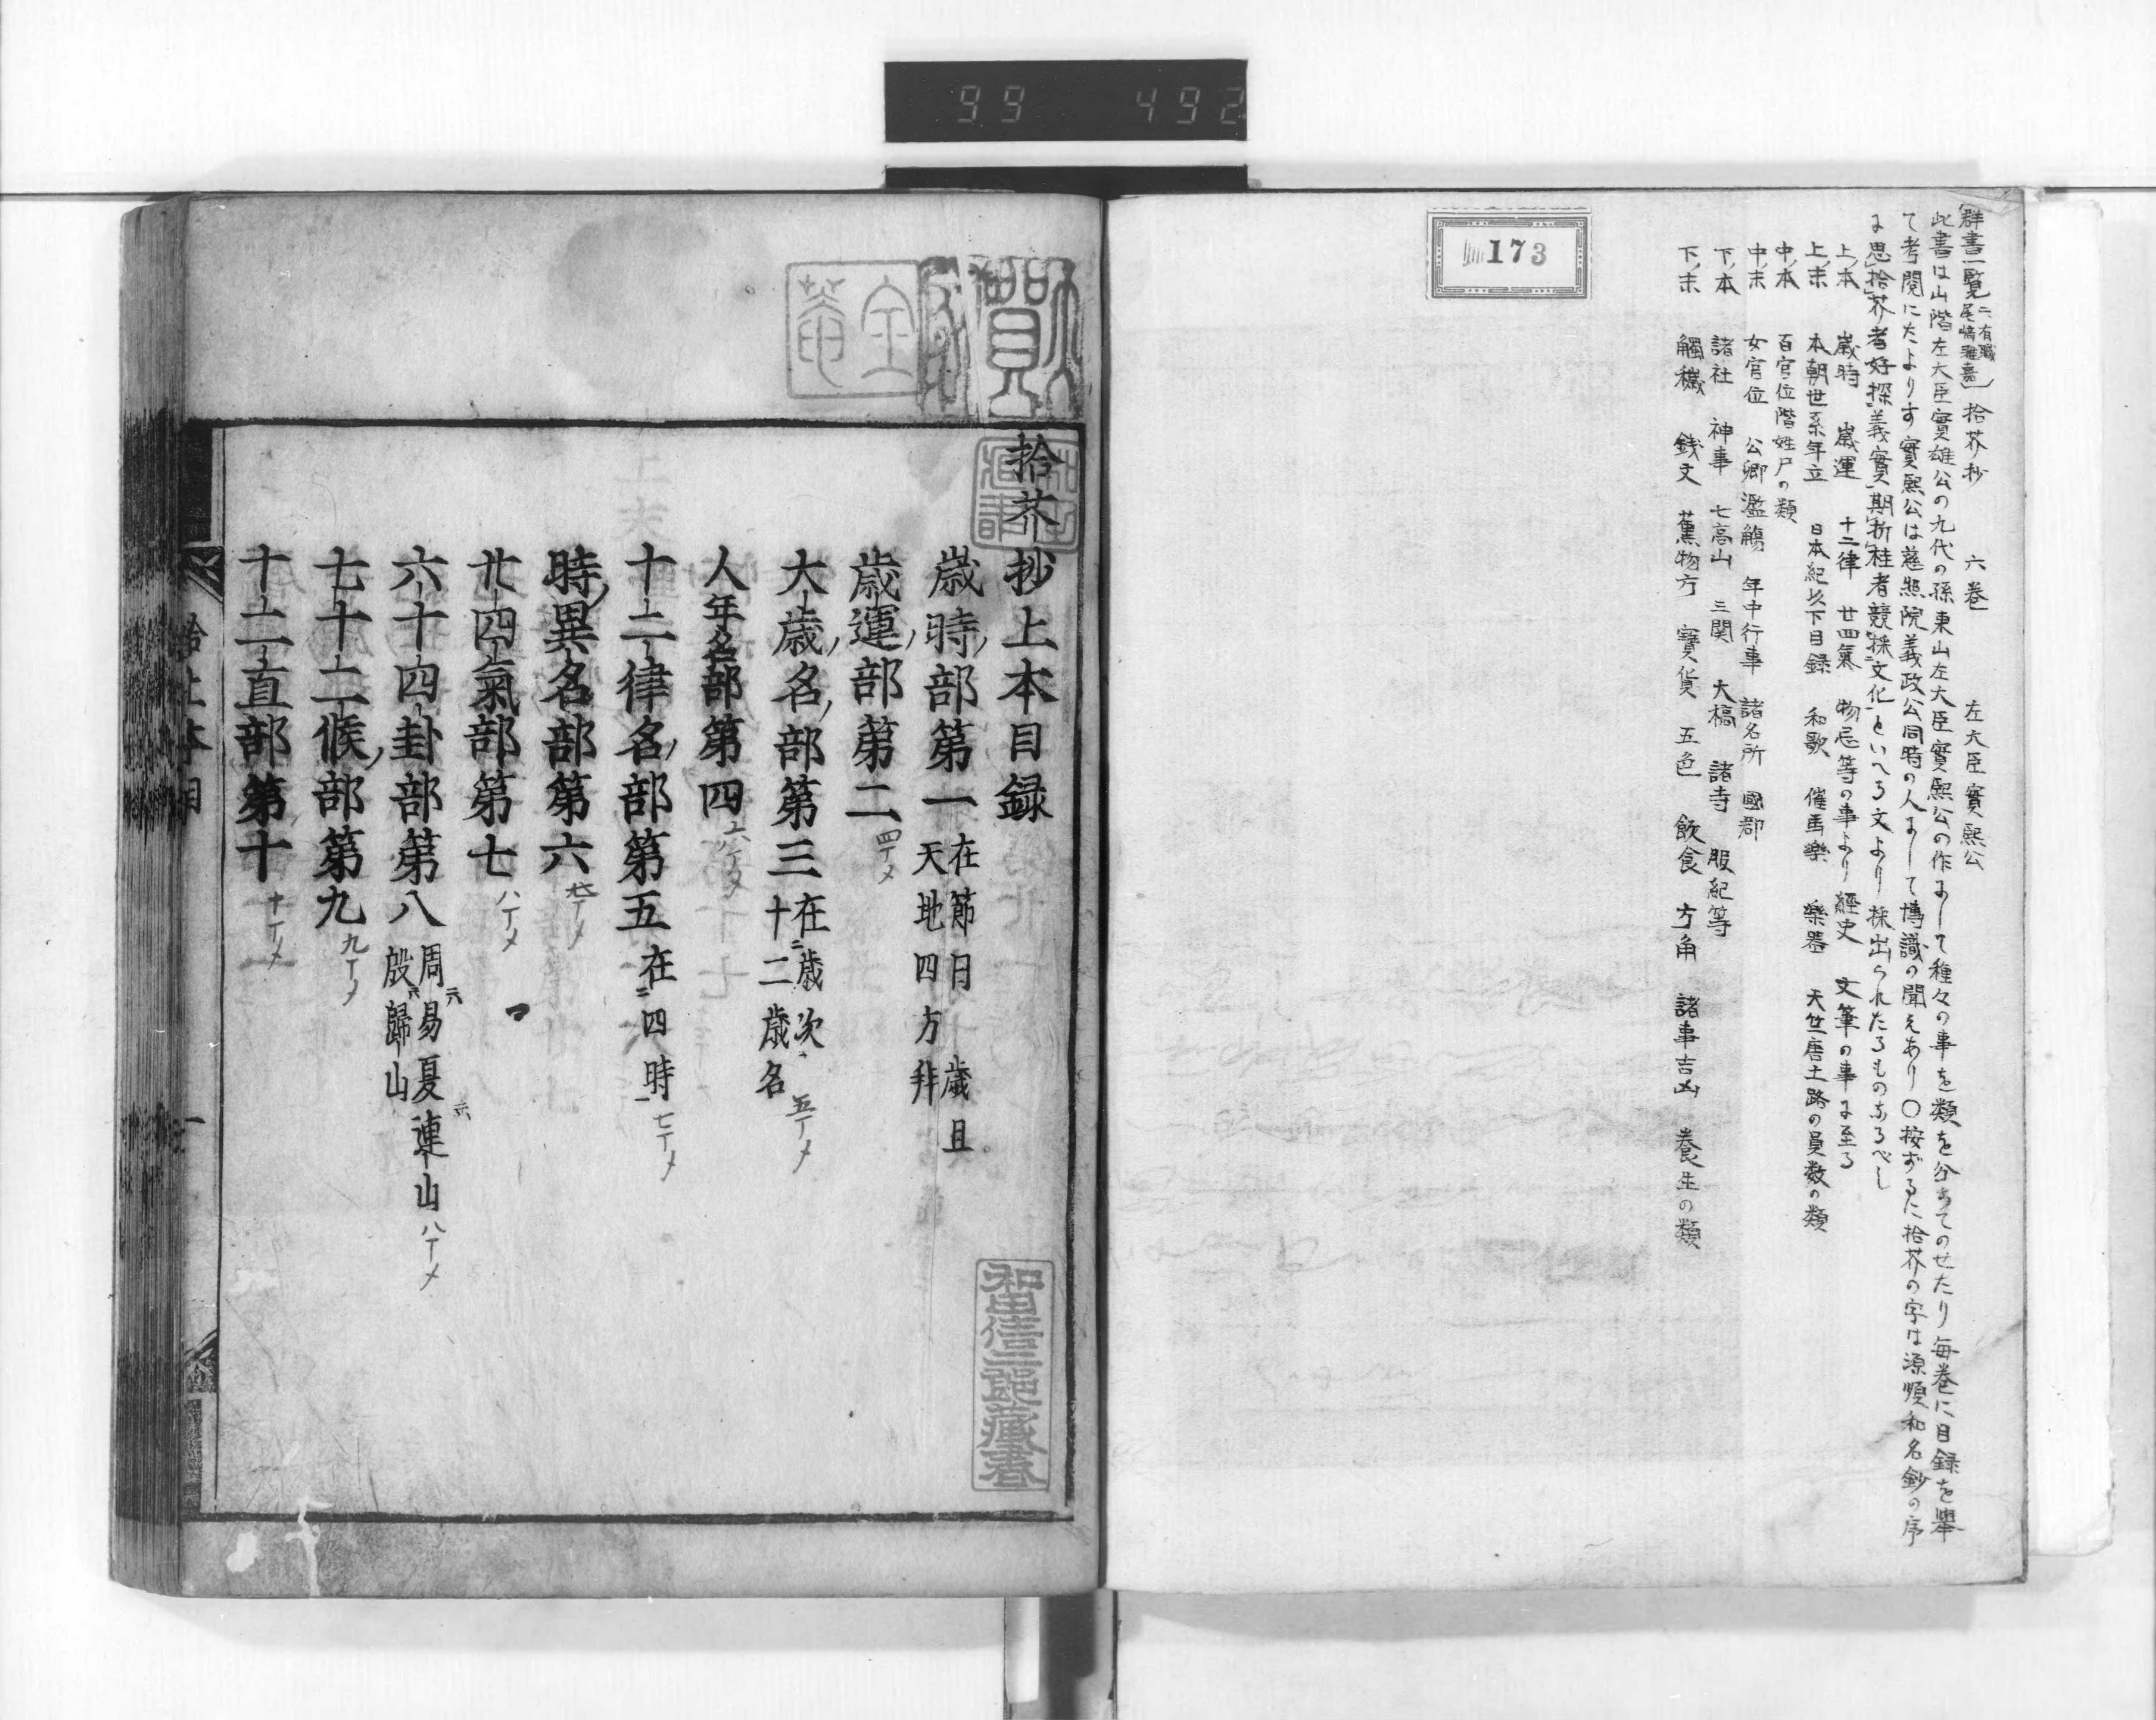 99 492
173
群書一覧 二有職 尾崎雅嘉 拾芥抄 六巻 左大臣實熙公
此書は山階左大臣實雄公の九代の孫東山左大臣實熙公の作にして種々の事を類を分ちてのせたり毎巻に目録を挙
て考閲にたよりす實熙公は慈照院義政公同時の人にして博識の聞えあり〇按ずるに拾芥の字は源順和名鈔の序
に思拾芥者好探義實期折桂者競採文化といへる文より採出られたるものなるべし
上本 歳時 歳運 十二律 廿四氣 物忌等の事より 經史 文筆の事に至る
上末 本朝世系年立 日本紀以下目録 和歌 催馬樂 樂器 天竺唐土路の員数の類
中本 百官位階姓尸の類
中末 女官位 公卿濫觴 年中行事 諸名所 國郡
下本 諸社 神事 七高山 三関 大橋 諸寺 服紀等
下末 觸穢 銭文 薫物方 寳貨 五色 飲食 方角 諸事吉凶 養生の類
拾芥抄上本目録
歳時部第一 在節日 歳且 天地四方拜
歳運部第二 四丁メ
大歳名部第三 在歳次 十二歳名 五丁メ
人年名部第四 六丁メ
十二律名部第五 在四時 七丁メ
時異名部第六
廿四氣部第七 八丁メ
六十四卦部第八 周易夏連山 殷歸山 八丁メ
七十二候部第九 九丁メ
十二直部第十 十丁メ
拾上本目 一
和田信二郎藏書